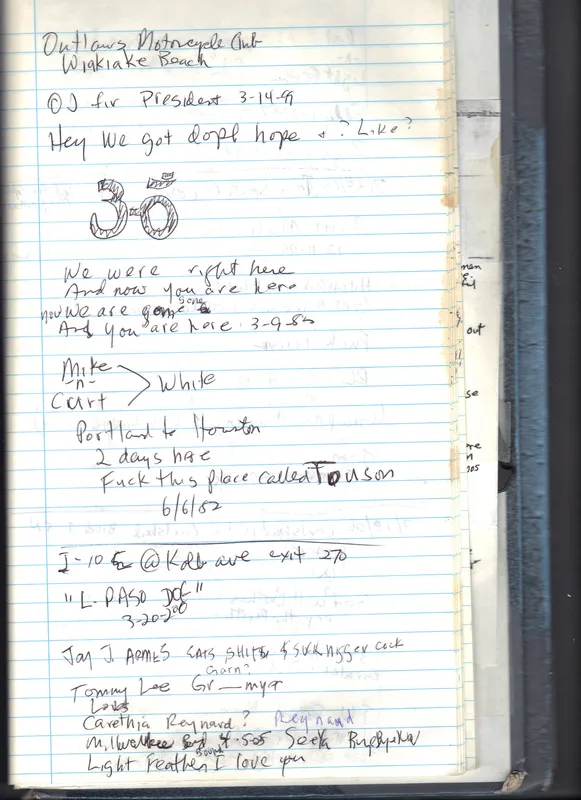 Outlaws Motorcycle Club
Wigklake Beach
OJ fir President 3-14-9
Hey We got dope hope + ? Like?
We were right here
And now you are here
now We are gone
gone
And you are here. 3-9-85
Mike
-n-
Curt
White
Portland to Houston
2 days here
Fuck this place called Touson
6/6/82
I-10 E @ Kolb ave exit 270
"L. PASO DOC"
3-20-200
Jay J. ARMES EATS SHIT & SUCK nigger cock
Garn?
Tommy Lee Gr—myer
Loves
Carethia Reynard? Reynard
Milwaukee Bound 4-505 Seeta
Light Feather I love you
men
out
se
re
n